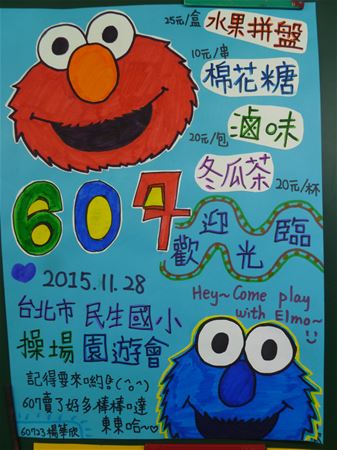 25元/盒 水果拼盤
10元/串
棉花糖
20元/包 滷味
冬瓜茶 20元/杯
607
歡迎光臨
2015.11.28
Hey~Come play
with Elmo~
台北市 民生國小
操場 園遊會
記得要來喲!!
607賣了好多棒棒噠
東東哈~
60723 楊華欣